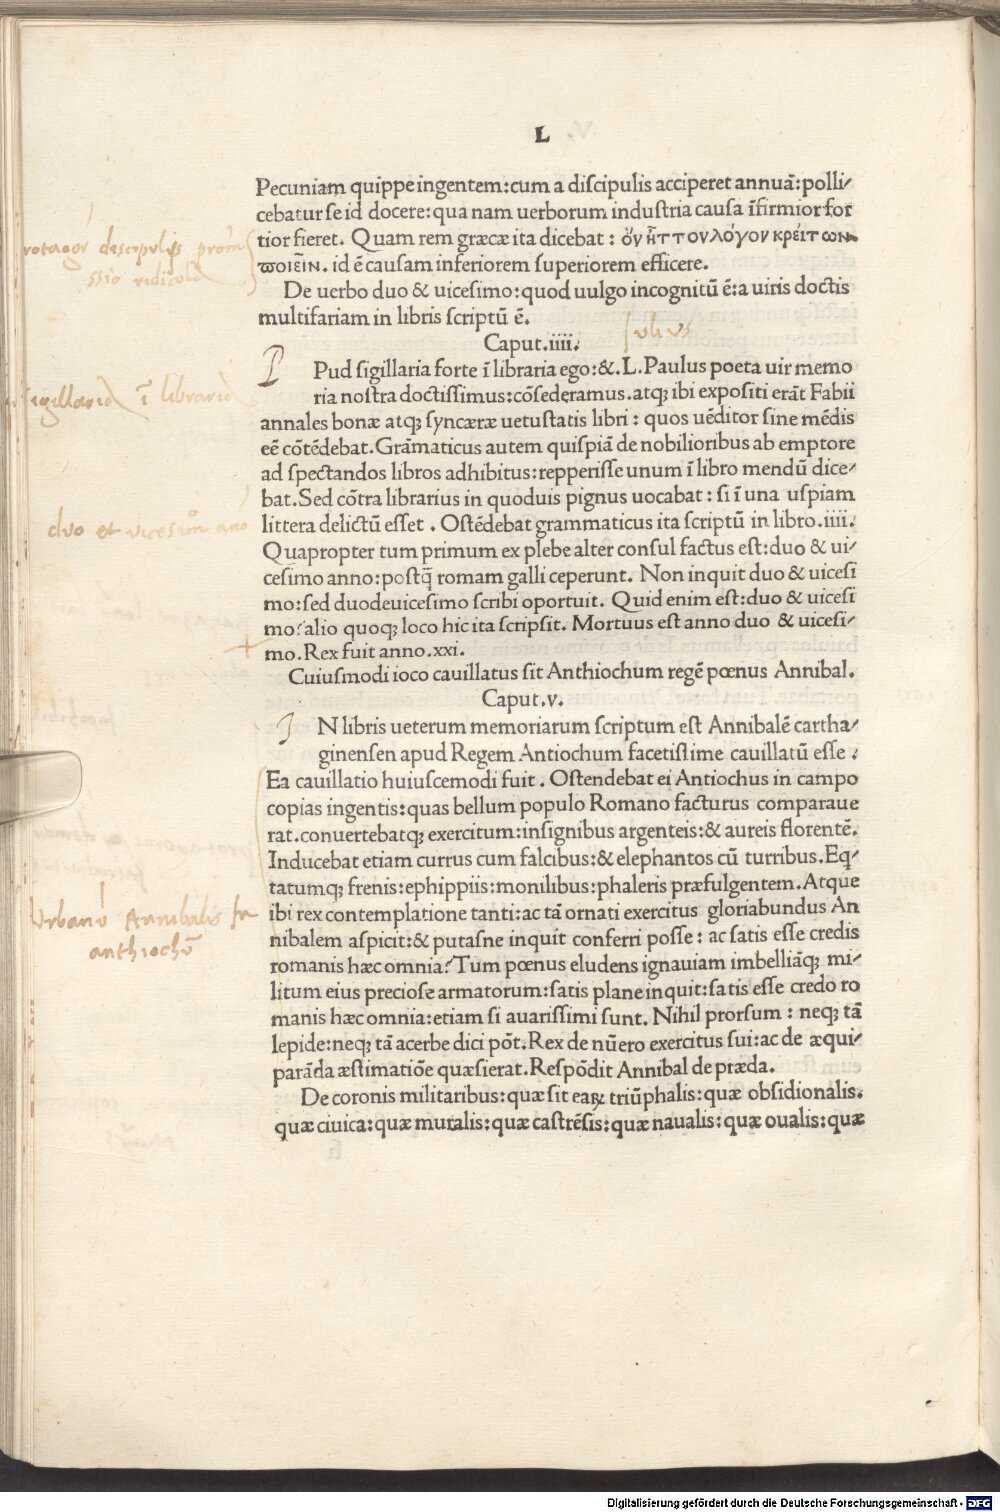 L
Pecuniam quippe ingentem:cum a discipulis acciperet annuā:polli⸗
cebatur se id docere:qua nam uerborum industria causa īfirmior for
tior fieret. Quam rem græcæ ita dicebat : ὀν ἧττον λόγον κρείττων
ποιεῖιν. id ē causam inferiorem superiorem efficere.
De uerbo duo & uicesimo:quod uulgo incognitū ē:a uiris doctis
multifariam in libris scriptū ē.
Iulius
Caput.iiii.
Pud sigillaria forte ī libraria ego:&.L.Paulus poeta uir memo
ria nostra doctissimus:cōsederamus.atqꝫ ibi expositi erāt Fabii
annales bonæ atqꝫ syncæræ uetustatis libri : quos uēditor sine mēdis
eē cōtēdebat.Grāmaticus autem quispiā de nobilioribus ab emptore
ad spectandos libros adhibitus:repperisse unum ī libro mendū dice⸗
bat.Sed cōtra librarius in quoduis pignus uocabat : si ī una uspiam
littera delictū esset . Ostēdebat grammaticus ita scriptū in libro.iiii.
Quapropter tum primum ex plebe alter consul factus est:duo & ui⸗
cesimo anno:postq̄ romam galli ceperunt. Non inquit duo & uicesi
mo:sed duodeuicesimo scribi oportuit. Quid enim est:duo & uicesi
mo?alio quoqꝫ loco hic ita scripsit. Mortuus est anno duo & uicesi⸗
mo.Rex fuit anno.xxi.
Cuiusmodi ioco cauillatus sit Anthiochum regē pœnus Annibal.
Caput.v.
I N libris ueterum memoriarum scriptum est Annibalē cartha⸗
ginensen apud Regem Antiochum facetissime cauillatū esse .
Ea cauillatio huiuscemodi fuit . Ostendebat ei Antiochus in campo
copias ingentis:quas bellum populo Romano facturus comparaue
rat.conuertebatqꝫ exercitum:insignibus argenteis:& aureis florentē.
Inducebat etiam currus cum falcibus:& elephantos cū turribus.Eq⸗
tatumqꝫ frenis:ephippiis:monilibus:phaleris præfulgentem.Atque
ibi rex contemplatione tanti:ac tā ornati exercitus gloriabundus An
nibalem aspicit:& putasne inquit conferri posse: ac satis esse credis
romanis hæc omnia?Tum pœnus eludens ignauiam imbelliāqꝫ mi⸗
litum eius preciose armatorum:satis plane inquit:satis esse credo ro
manis hæc omnia:etiam si auarissimi sunt. Nihil prorsum : neqꝫ tā
lepide:neqꝫ tā acerbe dici pōt. Rex de nūero exercitus sui:ac de æqui⸗
parāda æstimatiōe quæsierat.Respōdit Annibal de præda.
De coronis militaribus:quæ sit eaꝝ triūphalis:quæ obsidionalis.
quæ ciuica:quæ muralis:quæ castrēsis:quæ naualis:quæ oualis:quæ
rotagor discipulis
ssio ridicola
sigillaria ī libraria
duo et vicesimo
Annibalis in
anthiochū
Digitalisierung gefördert durch die Deutsche Forschungsgemeinschaft - DFG